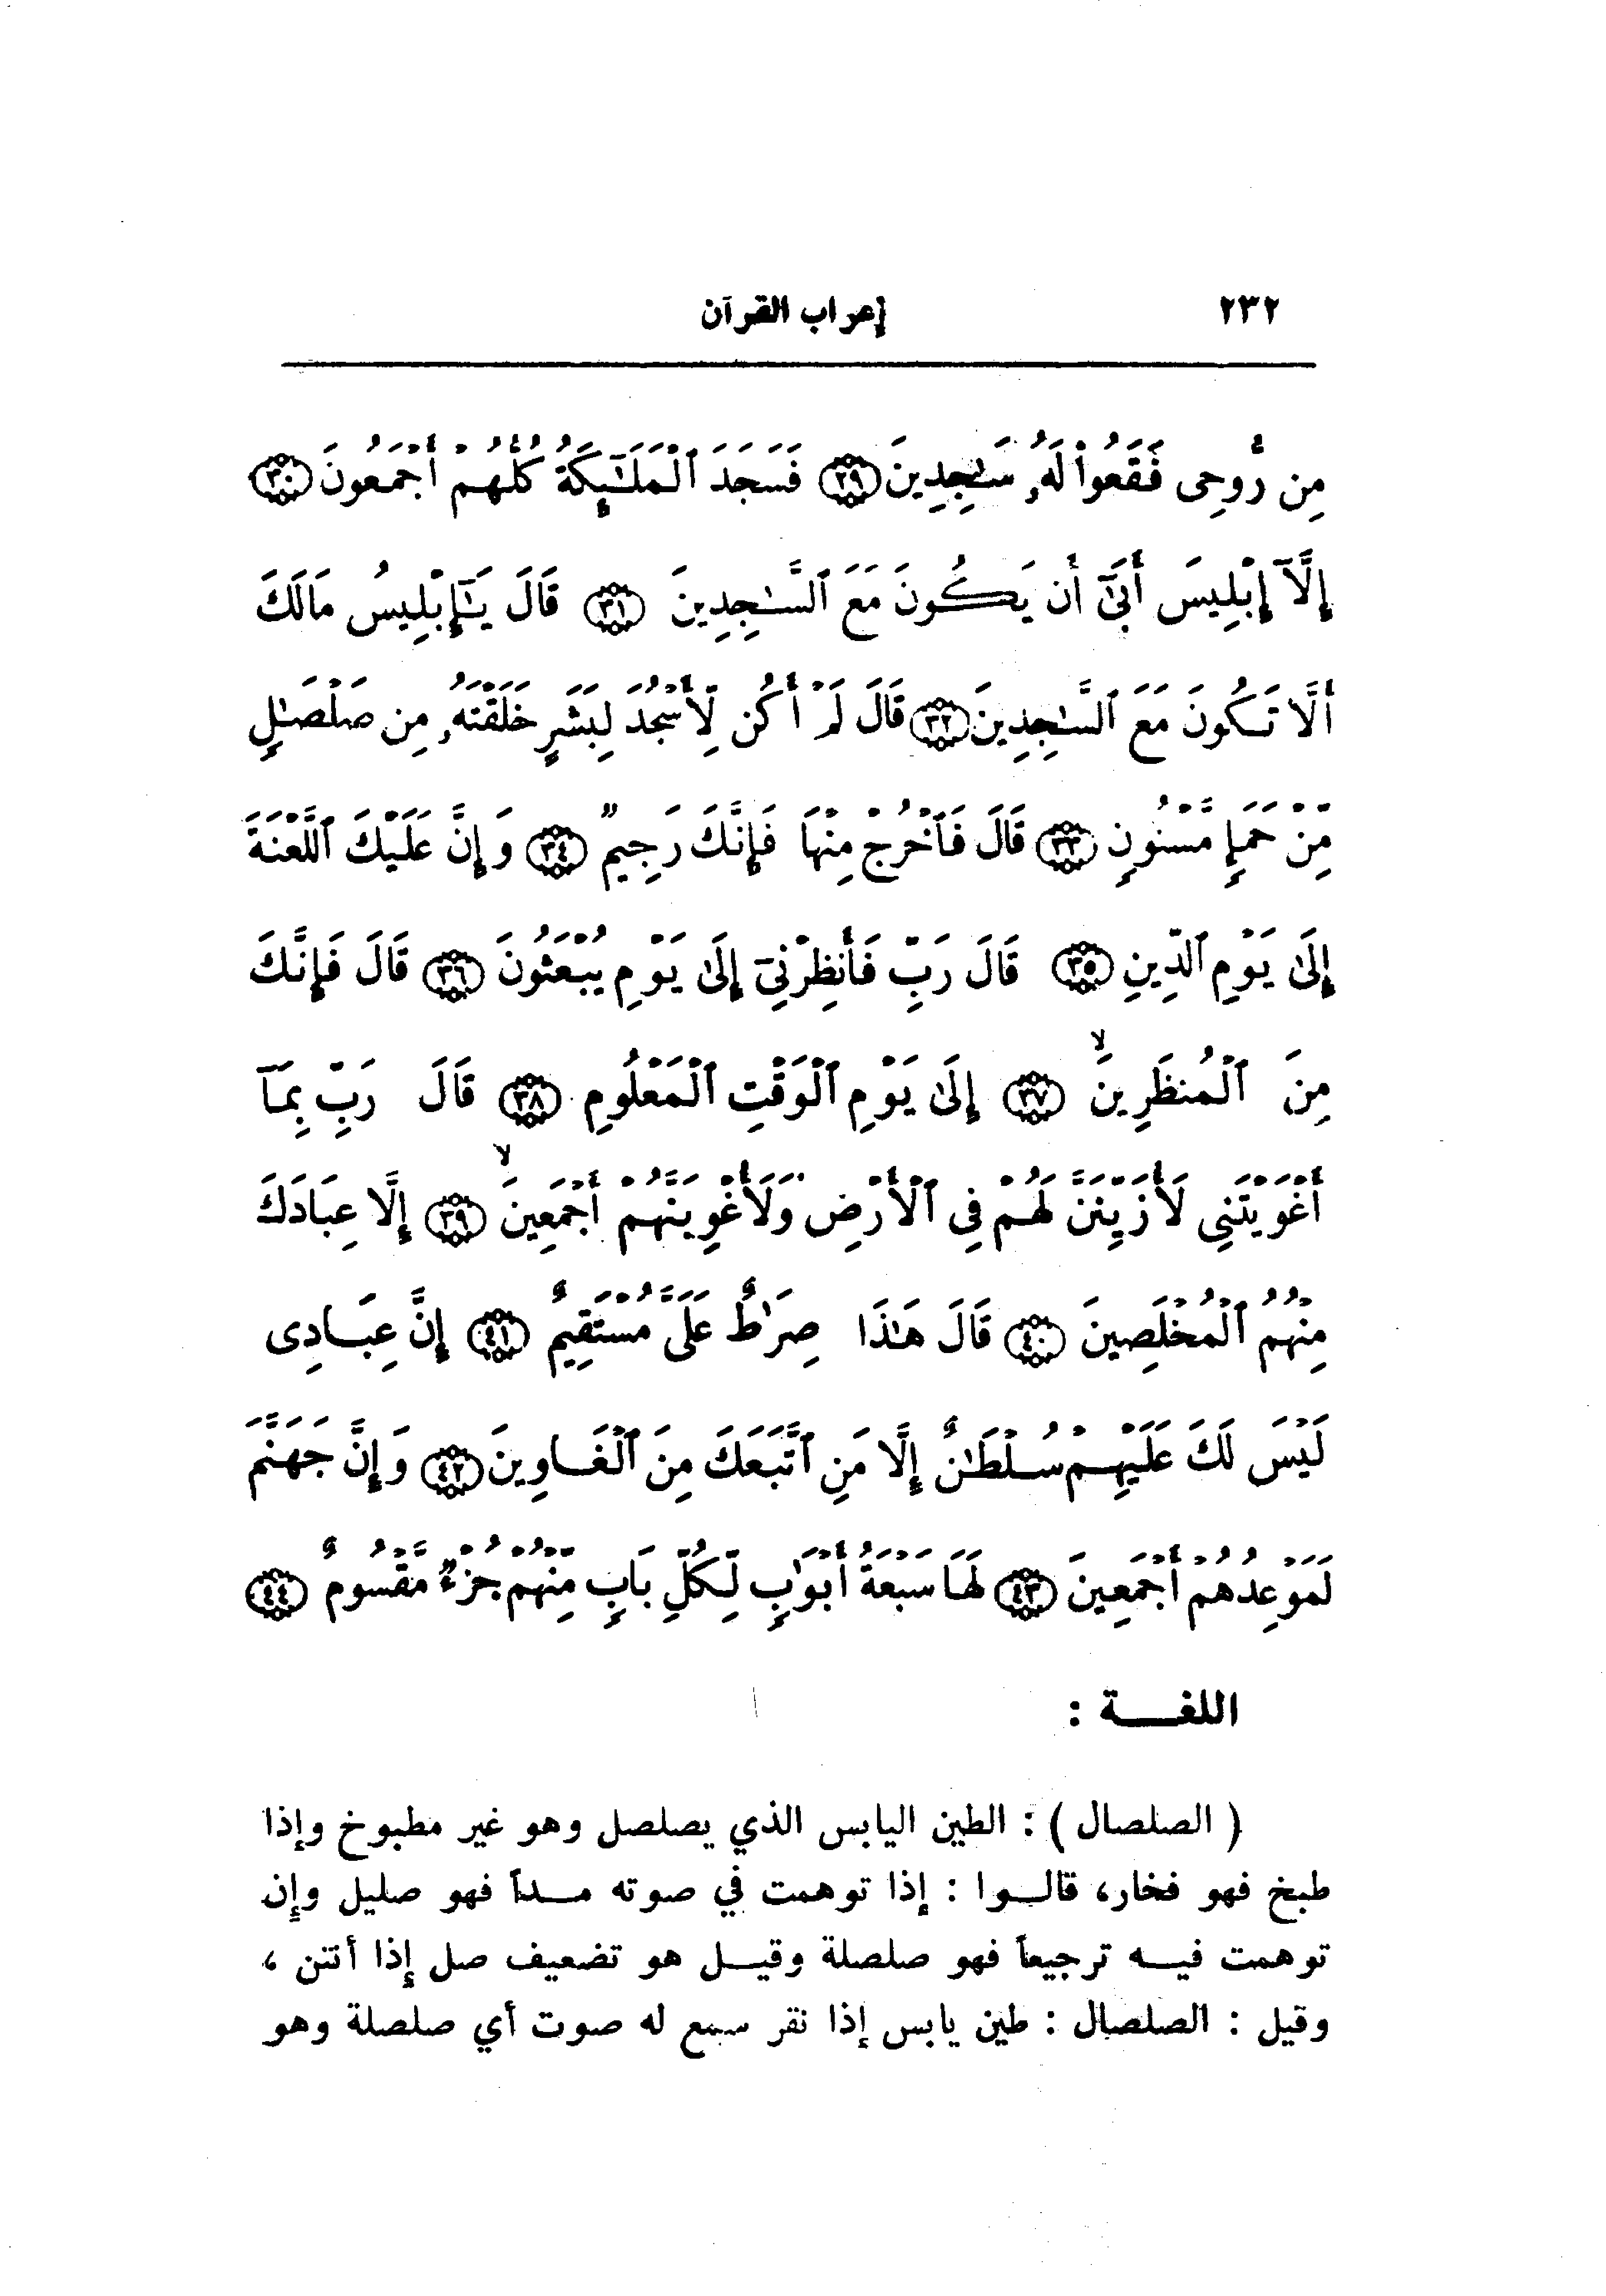 ٢٣٢ إعراب القرآن
مِن رُّوحِى فَقَعُوا۟ لَهُۥ سَـٰجِدِينَ ٢٩ فَسَجَدَ ٱلْمَلَـٰٓئِكَةُ كُلُّهُمْ أَجْمَعُونَ ٣٠
إِلَّآ إِبْلِيسَ أَبَىٰٓ أَن يَكُونَ مَعَ ٱلسَّـٰجِدِينَ ٣١ قَالَ يَـٰٓإِبْلِيسُ مَالَكَ
أَلَّا تَكُونَ مَعَ ٱلسَّـٰجِدِينَ ٣٢ قَالَ لَمْ أَكُن لِّأَسْجُدَ لِبَشَرٍ خَلَقْتَهُۥ مِن صَلْصَـٰلٍ
مِّنْ حَمَإٍ مَّسْنُونٍ ٣٣ قَالَ فَٱخْرُجْ مِنْهَا فَإِنَّكَ رَجِيمٌ ٣٤ وَإِنَّ عَلَيْكَ ٱللَّعْنَةَ
إِلَىٰ يَوْمِ ٱلدِّينِ ٣٥ قَالَ رَبِّ فَأَنظِرْنِىٓ إِلَىٰ يَوْمِ يُبْعَثُونَ ٣٦ قَالَ فَإِنَّكَ
مِنَ ٱلْمُنظَرِينَ ۙ ٣٧ إِلَىٰ يَوْمِ ٱلْوَقْتِ ٱلْمَعْلُومِ ٣٨ قَالَ رَبِّ بِمَآ
أَغْوَيْتَنِى لَأُزَيِّنَنَّ لَهُمْ فِى ٱلْأَرْضِ وَلَأُغْوِيَنَّهُمْ أَجْمَعِينَ ۙ ٣٩ إِلَّا عِبَادَكَ
مِنْهُمُ ٱلْمُخْلَصِينَ ٤٠ قَالَ هَـٰذَا صِرَٰطٌ عَلَىَّ مُسْتَقِيمٌ ٤١ إِنَّ عِبَادِى
لَيْسَ لَكَ عَلَيْهِمْ سُلْطَـٰنٌ إِلَّا مَنِ ٱتَّبَعَكَ مِنَ ٱلْغَاوِينَ ٤٢ وَإِنَّ جَهَنَّمَ
لَمَوْعِدُهُمْ أَجْمَعِينَ ٤٣ لَهَا سَبْعَةُ أَبْوَٰبٍ لِّكُلِّ بَابٍ مِّنْهُمْ جُزْءٌ مَّقْسُومٌ ٤٤
اللغـــة :
( الصلصال ) : الطين اليابس الذي يصلصل وهو غير مطبوخ وإذا
طبخ فهو فخار، قالــوا : إذا توهمت في صوته مــداً فهو صليل وإن
توهمت فيــه ترجيعاً فهو صلصلة وقيــل هو تضعيف صل إذا أنتن ،
وقيل : الصلصال : طين يابس إذا نقر سمع له صوت أي صلصلة وهو